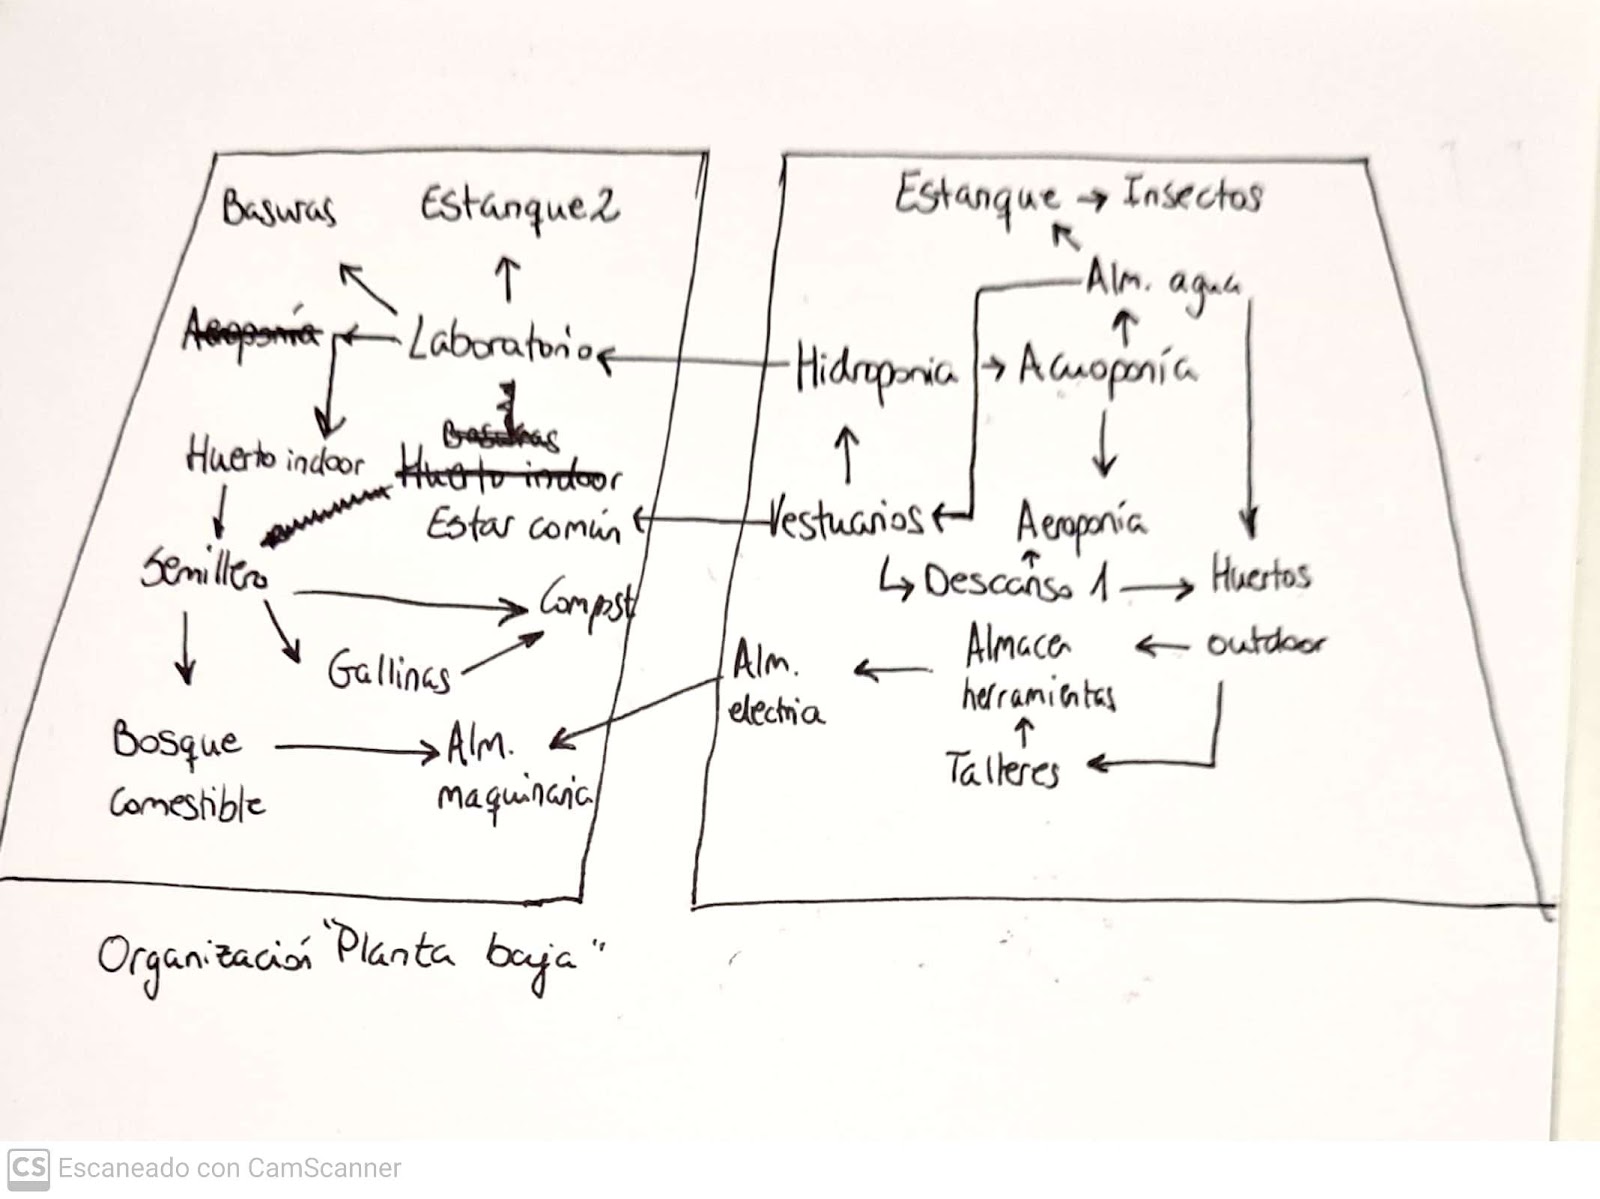 Basuras
Estanque 2
Aeroponía
Laboratorio
Huerto indoor
Basuras
Huerto indoor
Estar común
Semillero
Compost
Gallinas
Bosque
comestible
Alm.
maquinaria
Estanque → Insectos
Alm. agua
Hidroponia → Acuoponía
Vestuarios
Aeroponía
↳ Descanso 1 → Huertos
outdoor
Almacen
herramientas
Alm.
electria
Talleres
Organización "Planta baja"
CS Escaneado con CamScanner